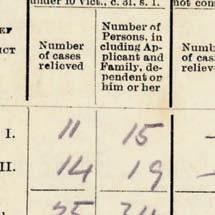 under 10 Vict., c. 31, s. 1.
not con
EF
ICT
Number
of cases
relieved
Number of
Persons, in
cluding Ap-
plicant and
Family, de-
pendent on
him or her
Num
of cas
reliev
I. 11 15 -
II. 14 19 -
25 34